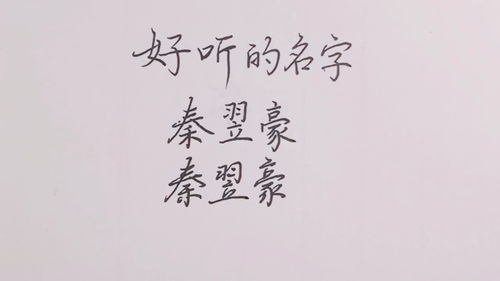 好听的名字
秦翌豪
秦翌豪